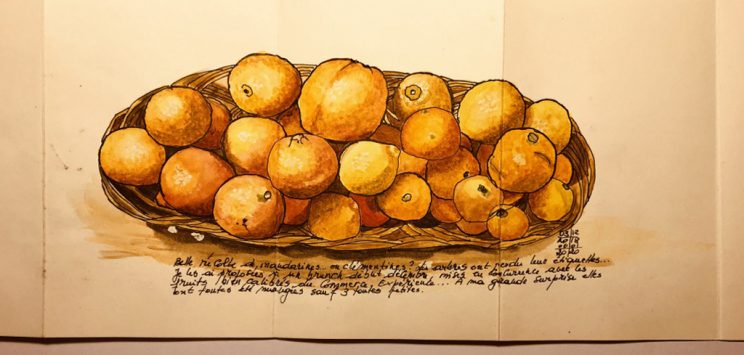 Belle récolte de mandarines... ou clémentines? Les arbres ont perdu leur étiquettes...
Je les ai proposées, à un brunch début décembre, mises en concurrence avec les
fruits bien calibrés du commerce. Expérience... A ma grande surprise elles
ont toutes été mangées sauf 3 toutes petites.